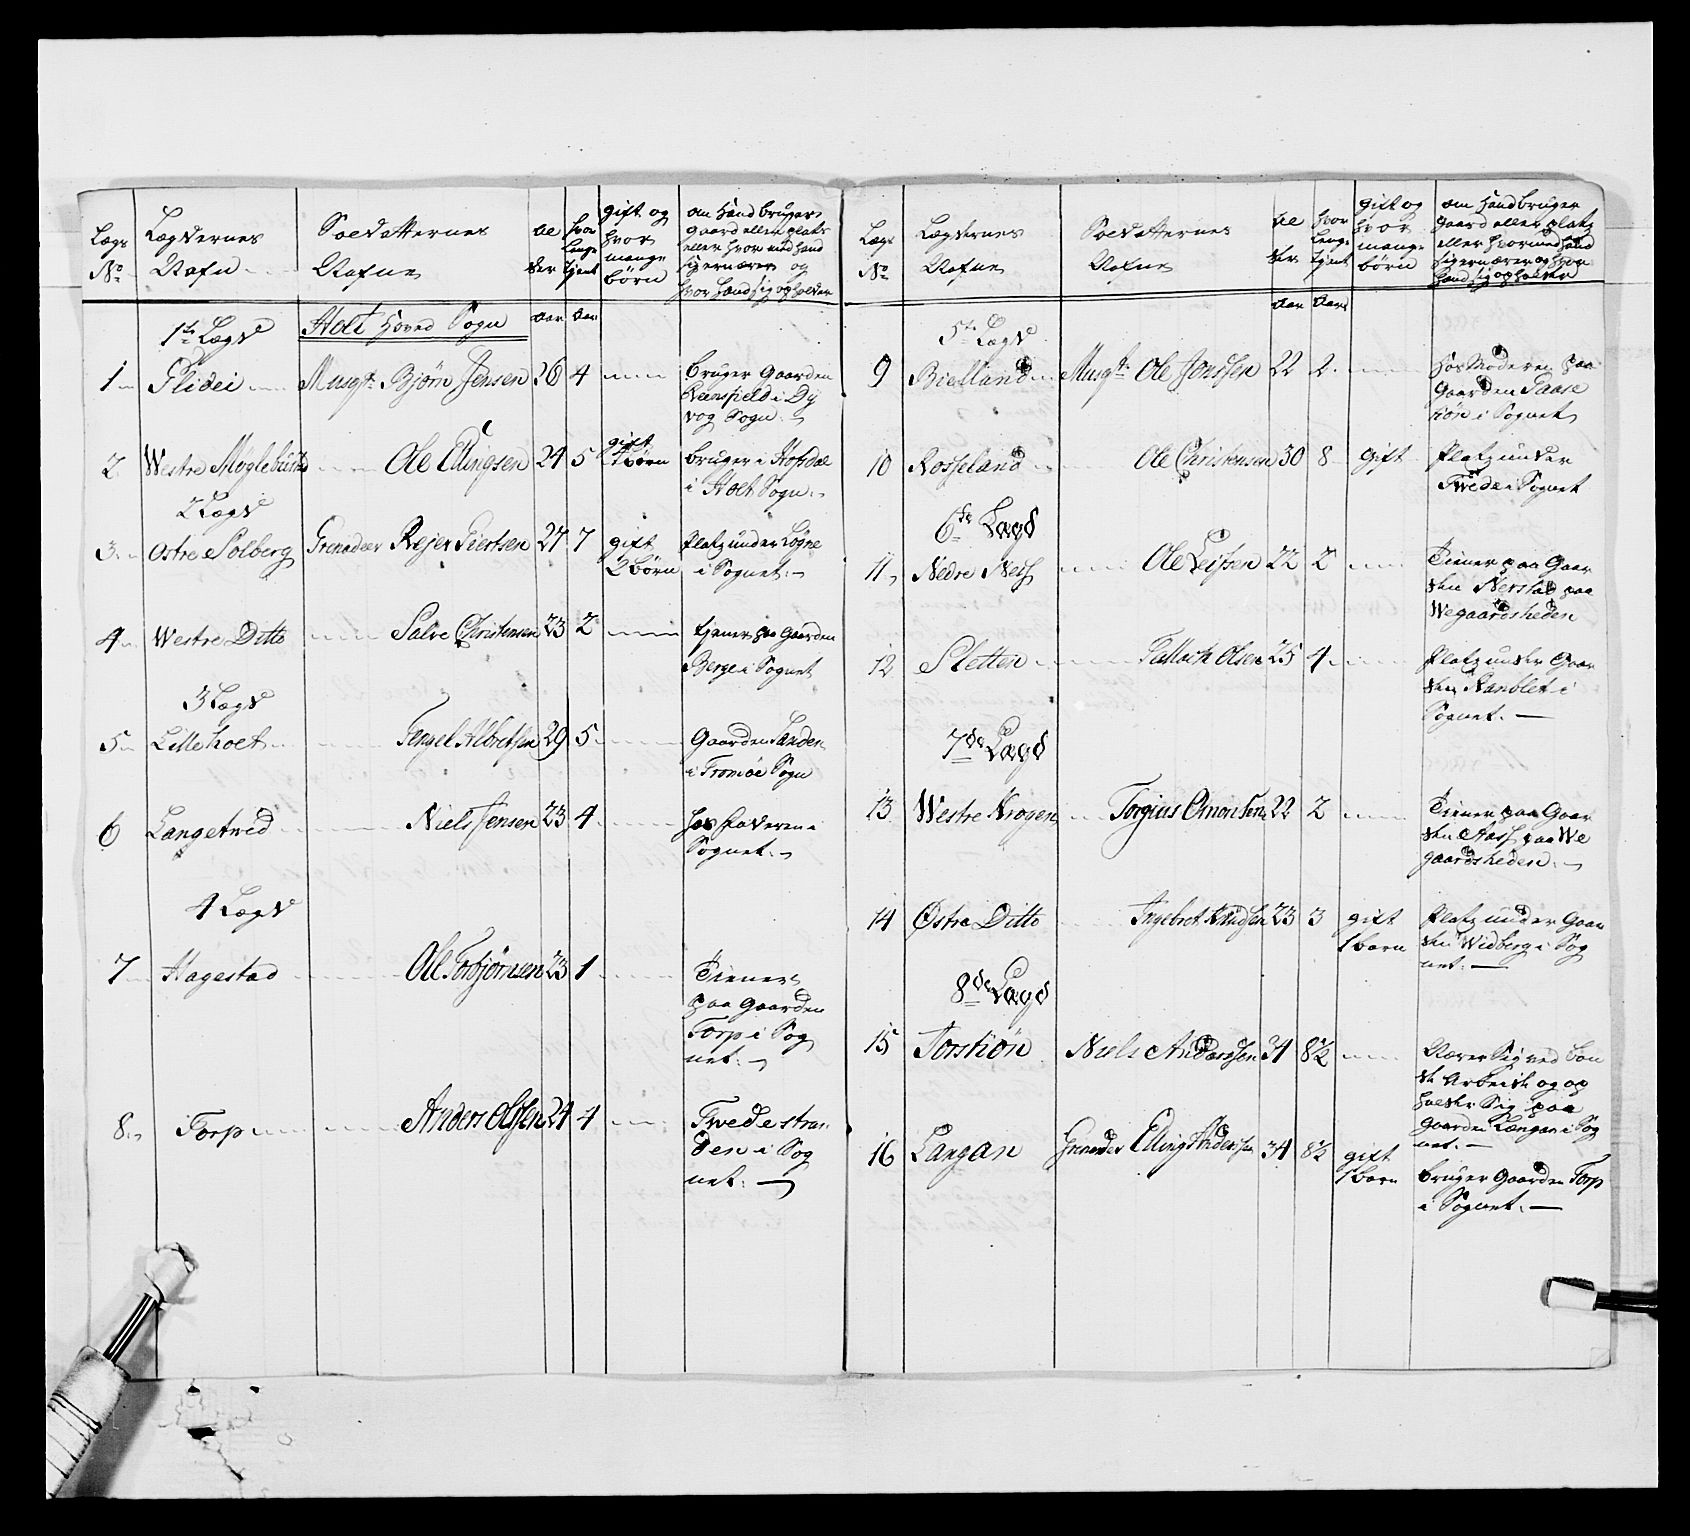 Lægs No
Lægdernes Nafn
Soldatternes Nafne
al der
hvor Længe tjent
gift og hvor mange børn
om Hand bruger Gaard eller plats eller hvor med hand sig ernærer og hvor Hand sig opholder
Aar Aar
1te Lægd
Holt Hoved Sogn
1 Glidei Musqt. Bjørn Jensen 26 4 bruger Gaarden
i Dy
vog Sogn.
2 Westre Møglebust Ole Ellingsen 24 5 gift 1 børn bruger i Hofdal
i Holt Sogn.
2 Lægd
3 Ostre Solberg Grenadeer Rejer Giertsen 27 7 gift 2 børn Platz under Løgne
i Sognet.
4 Westre Ditto Salve Christensen 23 2 tjener paa Gaarden
Berge i Sognet
3 Lægd
5 Lilleholt Tengel Albretsen 29 5 Gaarden Sanden
i Tromøe Sogn
6 Langetved Niels Jensen 23 4 hos faderen i
Sognet.
4 Lægd
7 Hagestad Ole Torbjørnsen 23 1 Tiener
paa Gaarden
Torp i Sog
net.
8 Torp Anders Olssen 24 4 Twedestran
den i Sog
net.
Lægs No
Lægdernes Nafne
Soldatternes Nafne
al der
hvor Længe tjent
gift og hvor mange børn
om Hand bruger Gaard eller plats eller hvor med Hand sig ernærer og hvor Hand sig opholder
Aar Aar
5te Lægd
9 Bielland Musqt. Ole Jonssen 22 2 hos Moderen paa
Gaarden
i Sognet
10 Rosseland Ole Christensen 30 8 gift Platz under
Twede i Sognet
6de Lægd
11 Nedre Ness Ole Leifsen 22 2 Tiener paa Gaar
den Nerstad paa
Wegaardsheden
12 Sletten Tallack Olsen 25 4 Platz under Gaar
den Ranblet i
Sognet.
7de Lægd
13 Westre Krogen Torgius Omondsen 22 2 Tiener paa Gaar
den Aass paa We
gaardsheden.
14 Østre Ditto Ingebret Knudsen 23 3 gift 1 barn Platz under Gaar
den Widberg i Sog
net.
8de Lægd
15 Torskiøn Niels Anderssen 34 8½ Nærer Sig ved Bon
de Arbeide og op
holder Sig paa
Gaarden Længan i Sog
net.
16 Langan Grenader Elling Anderssen 34 8½ gift 1 barn bruger Gaarden Torp
i Sognet.